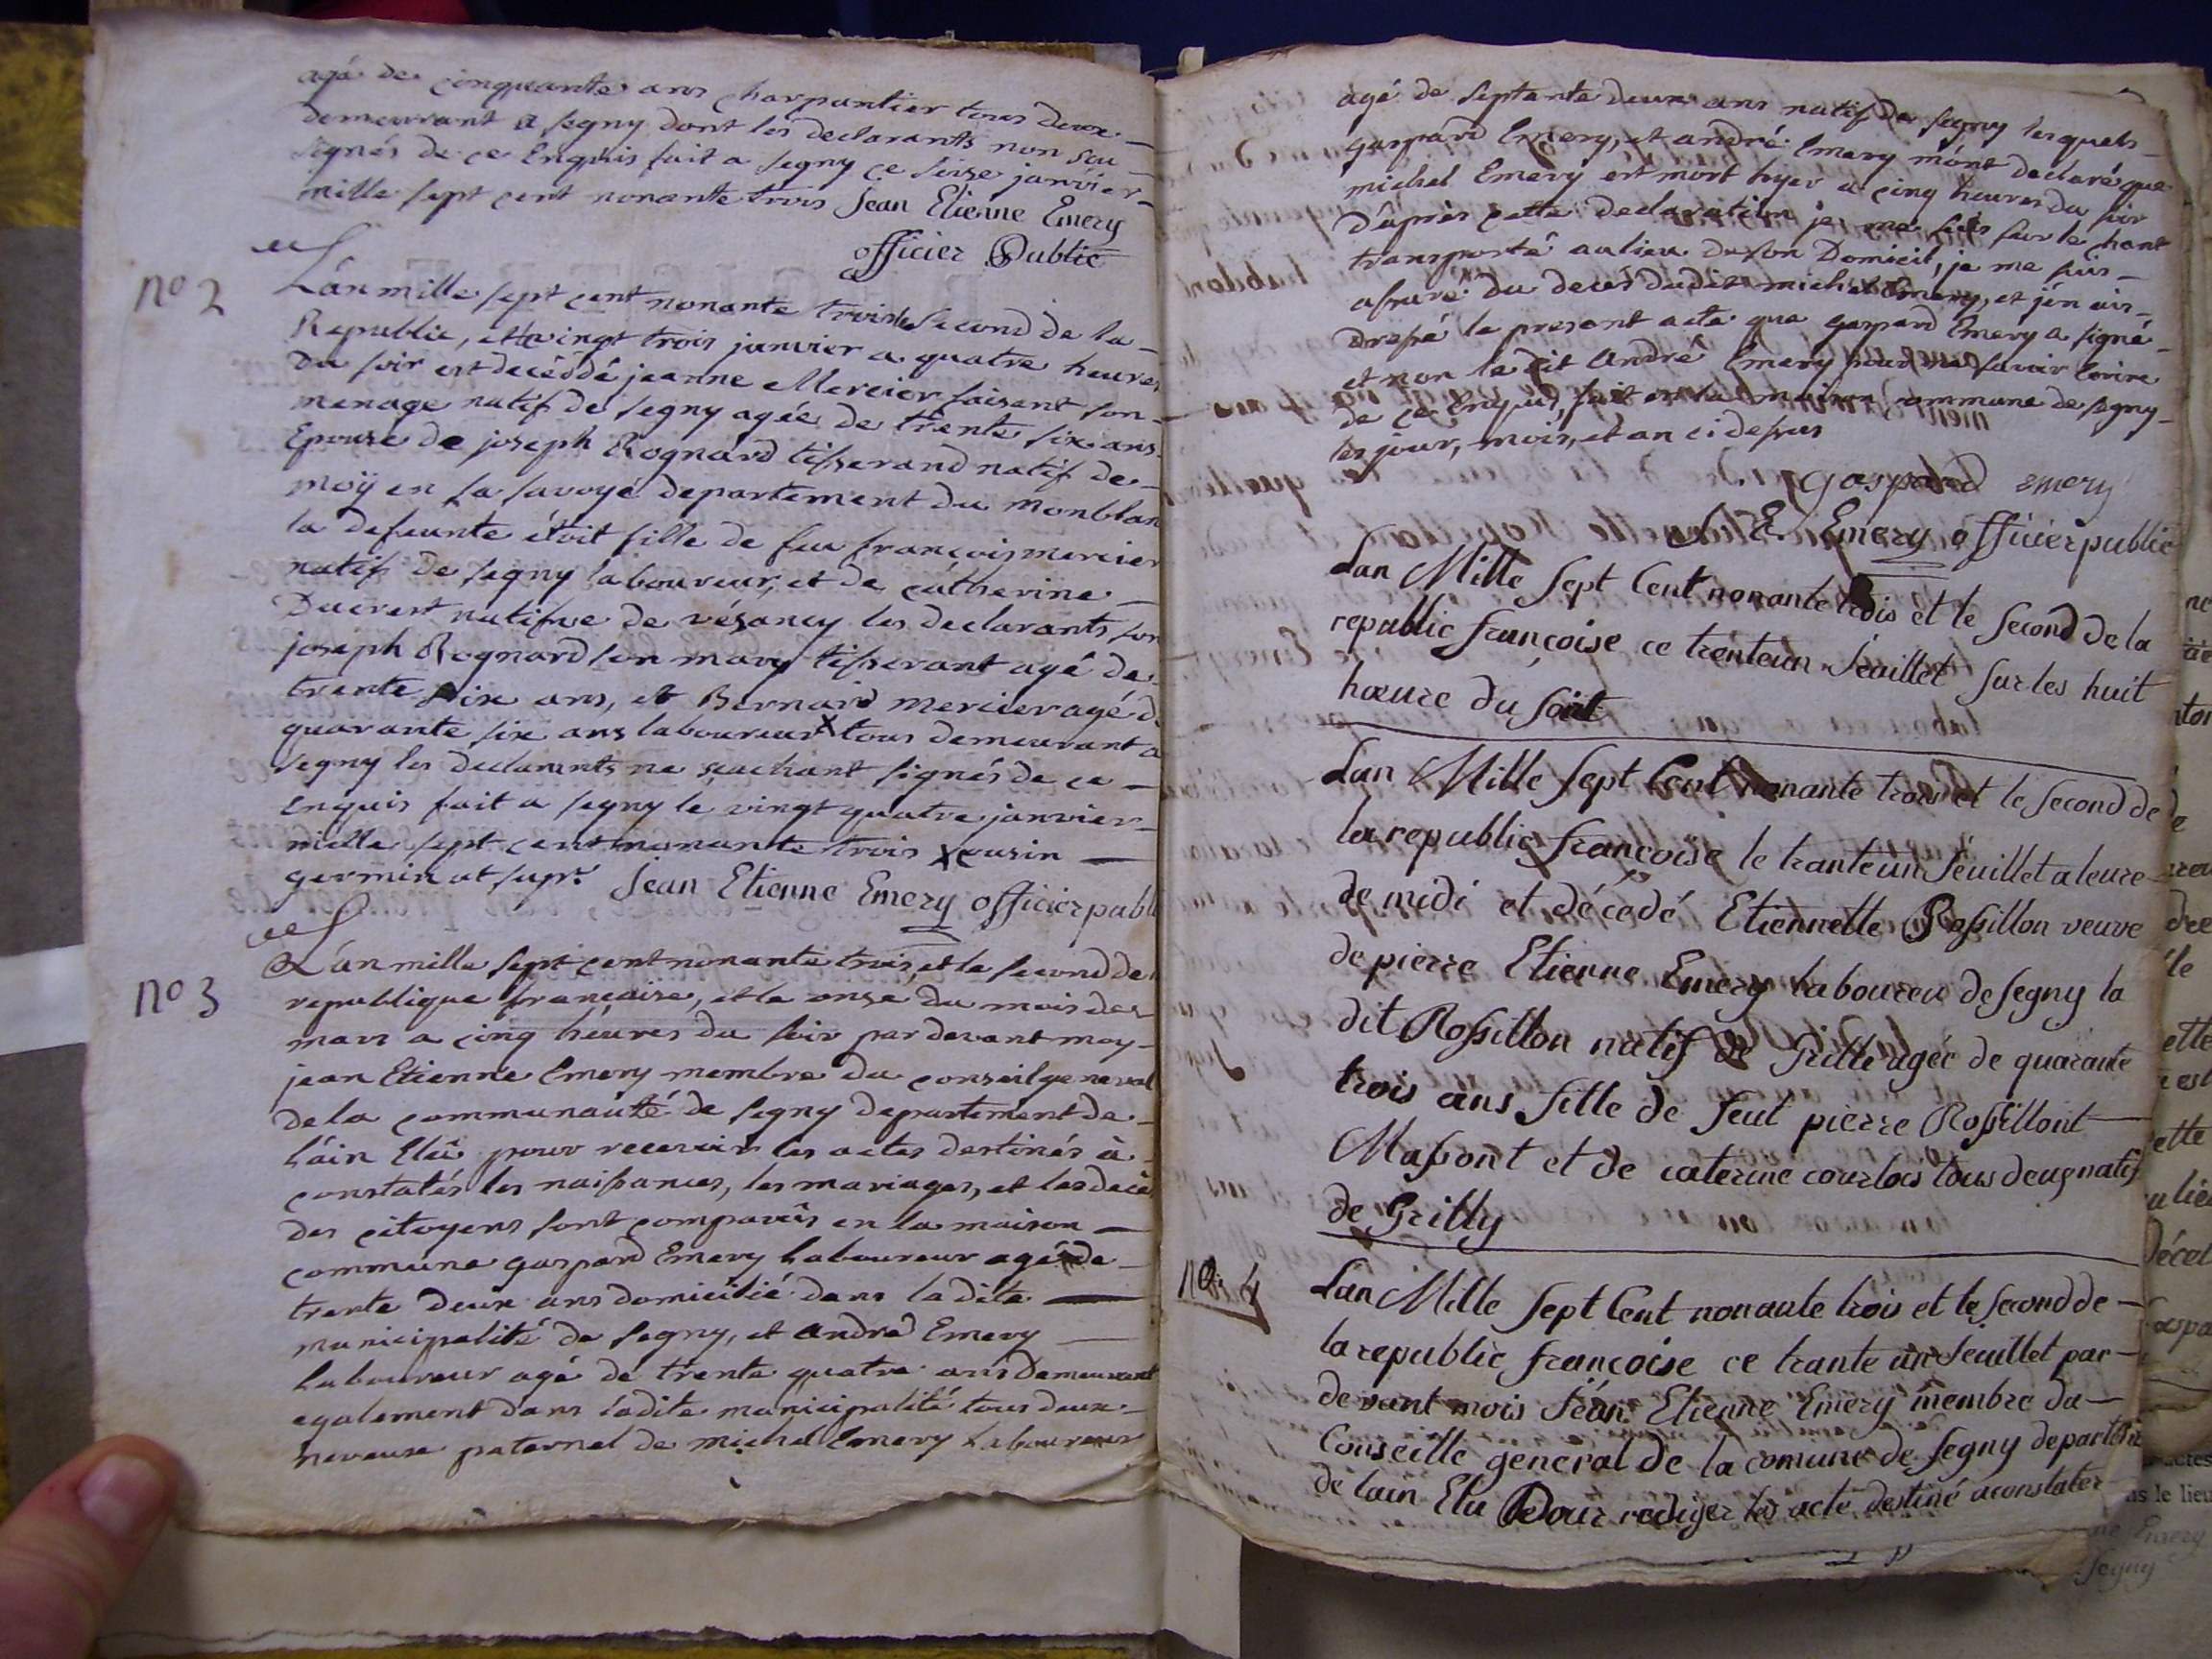 agé de cinquante ans charpantier tous deux
demeurant a segny dont les declarants non scu
signés de ce Enquis fait a segny ce seise janvier
mille sept cent nonante trois Jean Etienne Emery
officier Public
no 2
L'án mille sept cent nonante trois le second de la
Republic, et le vingt trois janvier a quatre heures
du soir est decéddé jeanne Mercier faisant son
menage natif de segny agée de trente six ans
Epouse de joseph Rognard tisserand natif de
moÿ en sa savoyé departement du monblan
la defunte étoit fille de feu françois mercier
natif de segny laboureur, et de catherine
Ducrest natifve de vésancy les declarants son
joseph Rognard son mary tisserant agé de
trente six ans, et Bernard mercier agé d
quarante six ans laboureur x tous demeurant a
segny les declarants ne scachant signés de ce
enquis fait a segny le vingt quatre janvier
mille sept cent nonante trois x cousin
germin at supt. Jean Etienne Emery officier publ
no 3
L'án mille sept cent nonante trois, et le second de
republique francaise, et le onse du mois de
mars a cinq héures du soir par devant moy
jean Etienne Emery membre du conseil general
de la communauté de segny departement de
l'áin Elû pour recevoir les actes destinés à
constatés les naissances, les mariages, et les decè
des citoyens sont comparûs en la maison
commune gaspard Emery laboureur agé de
trente deux ans domicilié dans la dite
municipalité de segny, et andré Emery
laboureur agé de trente quatre ans demeurant
egalement dans ladite municipalité tous deux
neveuse paternel de michel Emery laboureur
agé de septante deux ans natif de segny lesquels
gaspard Emery, et andré Emery m'ont declaré que
michel Emery est mort hyer a cinq heures du soir
D'aprés cette declaration je me suis sur le chant
transporté au lieu de son Domicil, je me suis
assuré du decés dudit michel Emery, et j'en ais
dressé le present acte que gaspard Emery a signé
et non le dit André Emery pour ne savoir Ecrire
de ce Enquis, fait en la maison commune de segny
les jour, mois, et an ci dessus
gaspard emery
J. E. Emery officier public
Lan Mille sept Cent nonante trois et le second de la
republic francoise ce trenteun Jeuillet sur les huit
hœure du soit
Lan Mille sept Cent nonante trois et le second de
la republic francoise le tranteun Jeuillet a leure
de midi et décedé Etiennette Rossillon veuve
de pierre Etienne Emery laboureu de segny la
dit Rossillon natif de Grille agée de quarante
trois ans fille de feut pierre Rossillont
Massont et de caterine courlois tous deug natif
de Grilly
No 4
Lan Mille sept Cent nonante trois et le second de
la republic francoise ce trante un Jeuillet par
devant mois Jéan Etienne Emery membre du
Conseille general de la comune de segny departeme
de lain Elu Pour rediger les acte destiné a constater